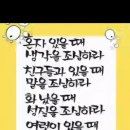 혼자 있을 때
생각을 조심하라
친구들과 있을 때
말을 조심하라
화 났을 때
성질을 조심하라
여럿이 있을 때